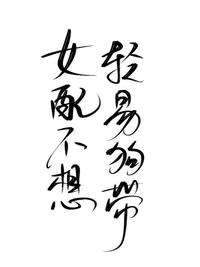 女配不想
轻易狗带